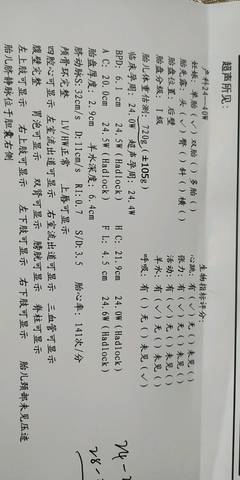 超声所见:
产科24—40W
妊娠:单胎(✓)双胎()多胎()
胎先露:头(✓)臀()斜()横()
胎盘位置:后壁
胎盘分级:Ⅰ级
胎儿体重估测:720g(±105g)
临床孕周:24.0W 超声孕周:24.4W
生物指标评分:
心跳:有(✓)无()未见()
张力:有(✓)无()未见()
活动:有(✓)无()未见()
羊水:有(✓)无()未见()
呼吸:有()无()未见(✓)
BPD: 6.1 cm 24.5W(Hadlock) H C: 21.9cm 24.0W(Hadlock)
A C: 20.0cm 24.5W(Hadlock) F L: 4.5 cm 24.6W(Hadlock)
胎盘厚度:2.9cm 羊水深度:6.4cm
脐动脉S:32cm/s D:11cm/s RI:0.7 S/D:3.5 胎心率:141次/分
颅骨环完整 LV/HW正常 上唇可显示
四腔心可显示 左室流出道可显示 右室流出道可显示 三血管可显示
腹壁完整 胃泡可显示 双肾可显示 膀胱可显示 脊柱可显示
左上肢可显示 右上肢可显示 左下肢可显示 右下肢可显示 胎儿颈部未见压迹
胎儿脐静脉位于胆囊右侧